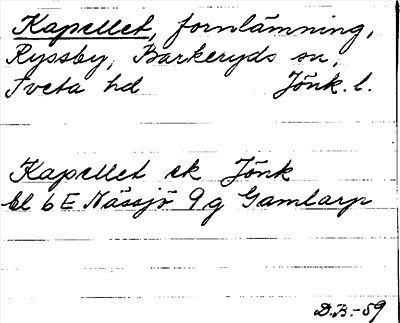 Kapellet, fornlämning,
Ryssby, Barkeryds sn,
Tveta hd Jönk. l.
Kapellet ek Jönk
bl 6E Nässjö 9g Gamlarp
D.B.-59